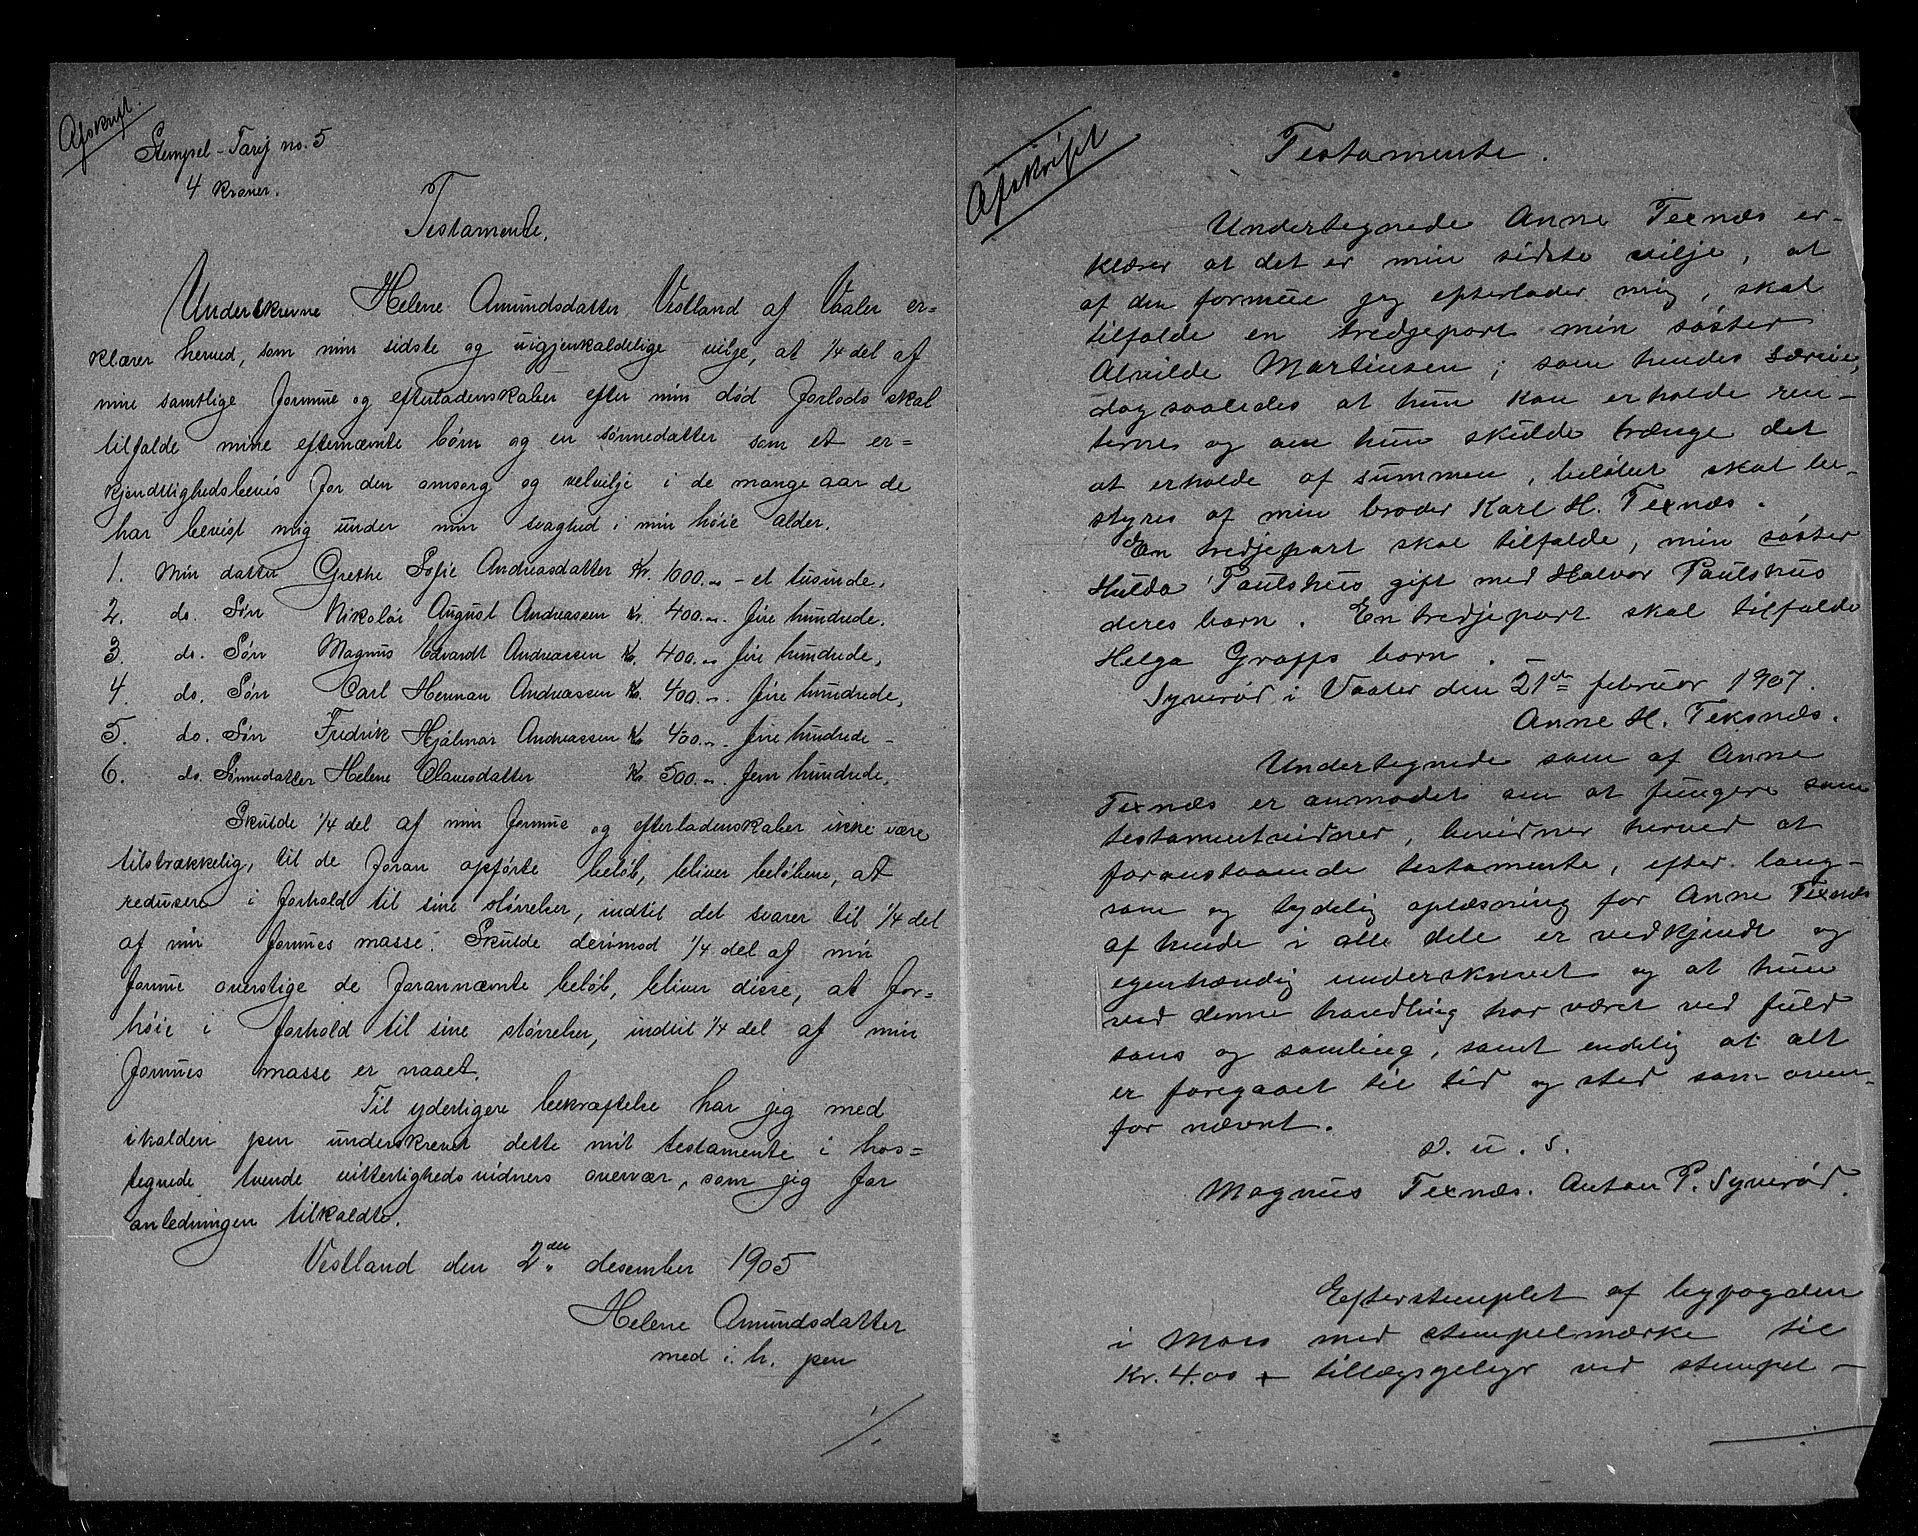 Afskrift.
Stempel-Tarif no. 5
4 kroner.
Testamente.
Underskrevne Helene Amundsdatter Vestland af Vaaler er=
klærer herved, som min sidste og uigjenkaldelige vilje, at 1/4 del af
mine samtlige formue og efterladenskaber efter min død forlods skal
tilfalde mine efternæmte børn og en sønnedatter som et er=
kjendtlighedsbevis for den omsorg og velvilje i de mange aar de
har bevist mig under min svaghed i min høie alder.
1. Min datter Grethe Sofie Andreasdatter Kr. 1000.- - et tusinde,
2. do. Søn Nikolai August Andreassen Kr. 400.- fire hundrede,
3. do. Søn Magnus Edvardt Andreassen Kr. 400.- fire hundrede,
4. do. Søn Carl Herman Andreassen Kr. 400.- fire hundrede,
5. do. Søn Fredrik Hjalmar Andreassen Kr. 400.- fire hundrede -
6. do. Sønnedatter Helene Olausdatter Kr. 500.- fem hundrede,
Skulde 1/4 del af min formue og efterladenskaber ikke være
tilstrækkelig, til de foran opførte beløb, bliver beløbene, at
redusere i forhold til sine størrelser, indtil det svarer til 1/4 del
af min formues masse. Skulde derimod 1/4 del af min
formue overstige de forannæmte beløb, bliver disse, at for=
høie i forhold til sine størrelser, indtil 1/4 del af min
formues masse er naaet.
Til yderligere bekræftelse har jeg med
iholden pen underskrevet dette mit testamente i hos=
tegnede tvende vitterlighedsvidners overvær, som jeg for
anledningen tilkaldte.
Vestland den 2den desember 1905
Helene Amundsdatter
med i. h. pen
./.
Afskrift
Testamente.
Undertegnede Anne Texnæs er-
klærer at det er min sidste vilje, at
af den formue jeg efterlader mig, skal
tilfalde en tredjepart min søster
Alvilde Martinsen; som hendes særeie,
dog saaledes at hun kan erholde ren-
terne og om hun skulde trænge det
at erholde af summen, beløbet skal be-
styres af min broder Karl H. Texnæs.
En tredjepart skal tilfalde, min søster
Hulda Paulshus gift med Halvor Paulshus
deres barn. En tredjepart skal tilfalde
Helga Graffs barn.
Synerød i Vaaler den 21de februar 1907.
Anne H. Teksnæs.
Undertegnede som af Anne
Texnæs er anmodet om at fungere som
testamentvidner, bevidner herved at
foranstaaende testamente, efter lang-
som og tydelig oplæsning for Anne Texnæs
af hende i alle dele er vedkjendt og
egenhændig underskrevet og at hun
ved denne handling har været ved fuld
sans og samling, samt endelig at alt
er foregaaet til tid og sted som oven-
for nævnt.
d. u. s.
Magnus Texnæs. Anton P. Synerød.
Efterstemplet af byfogden
i Moss med stempelmærke til
Kr. 4.00 + tillægsgebyr ved stempel-